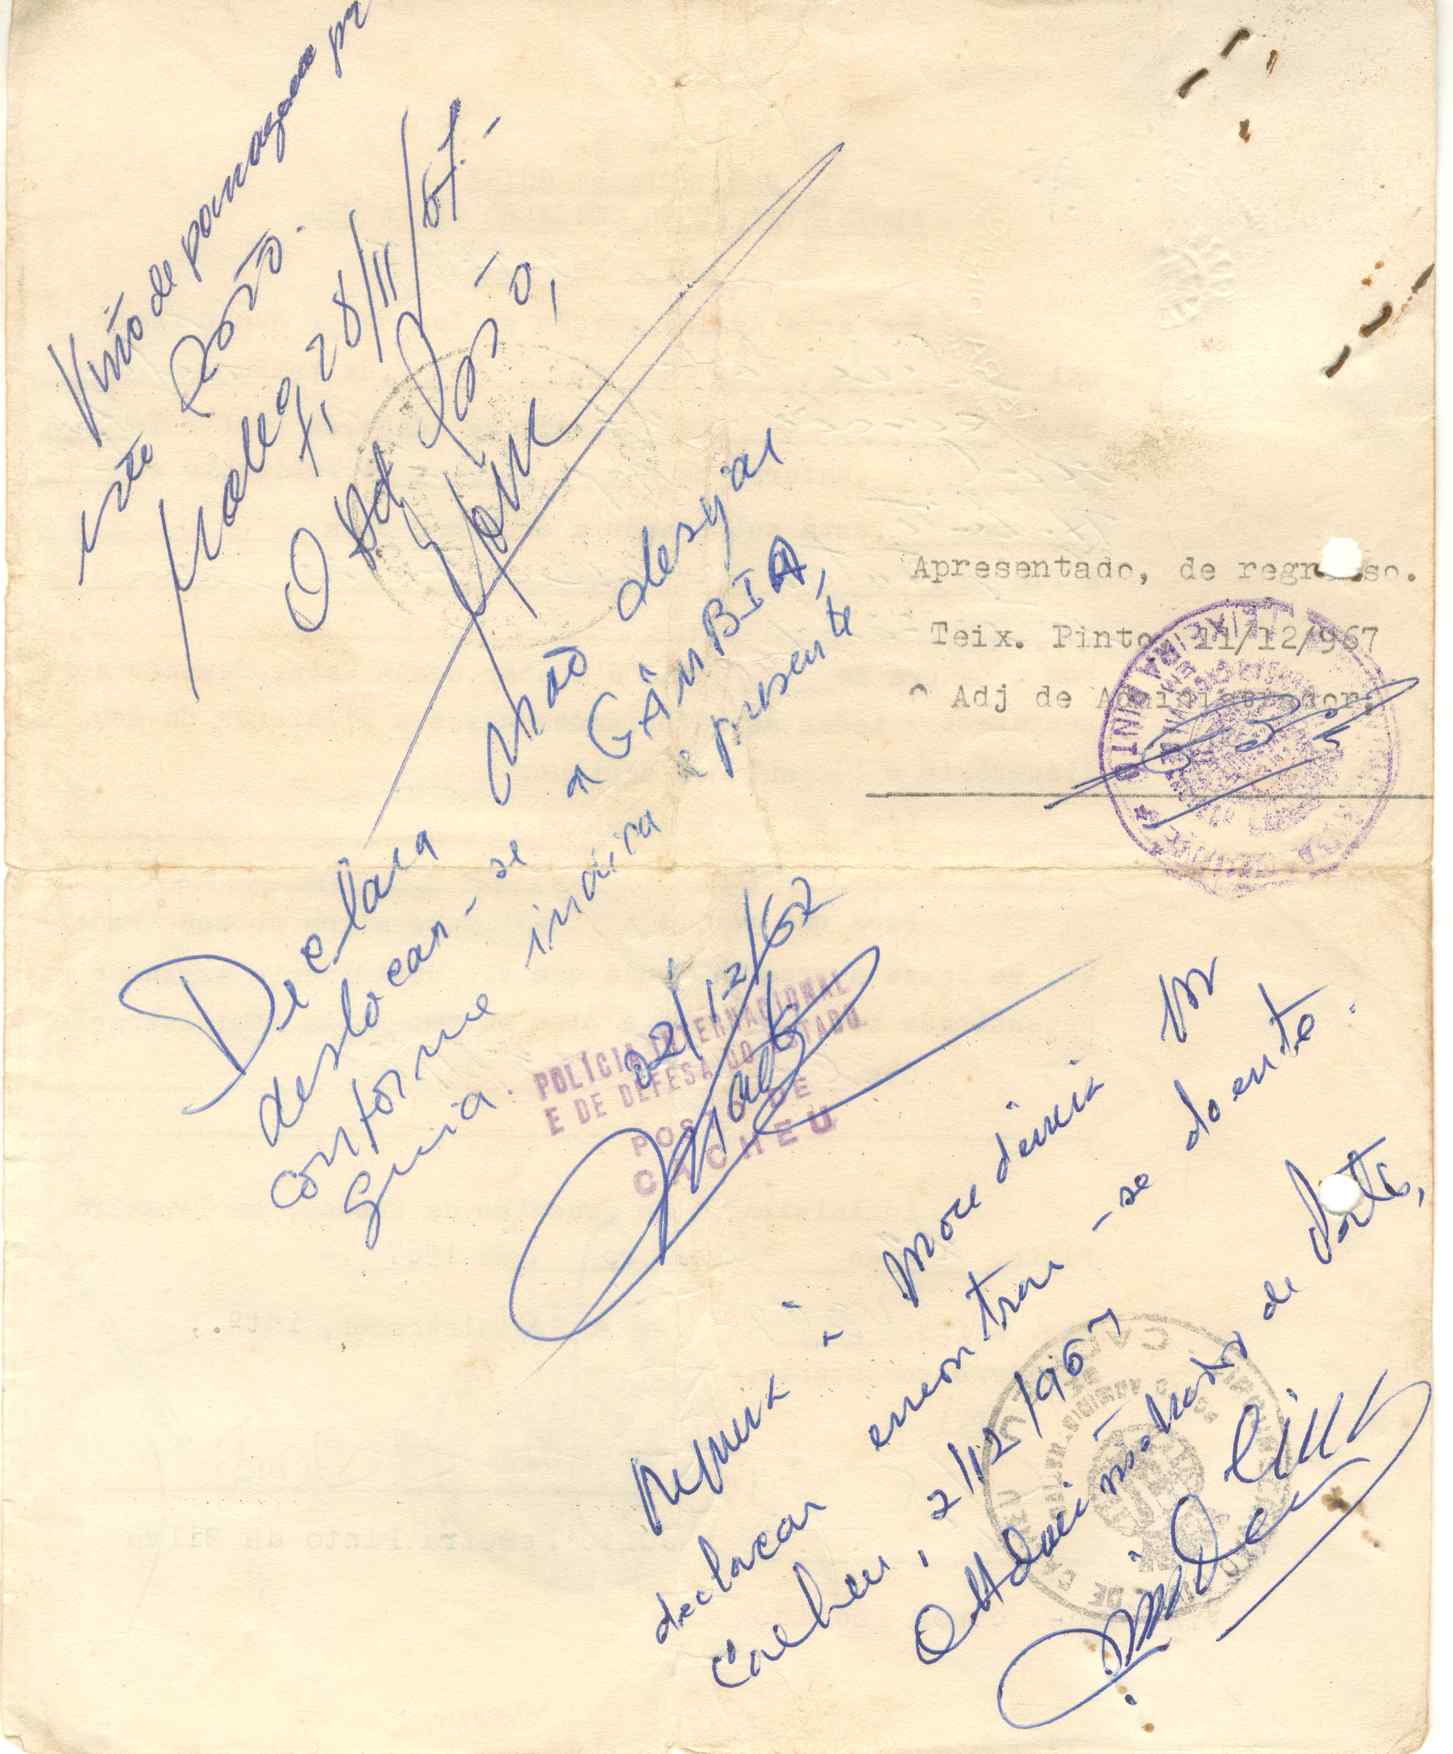 Visto de passagem
este Posto.
28/11/67.-
O Adj Posto,
Apresentado, de regresso.
Teix. Pinto, 11/12/967
O Adj de Administrador,
TEIXEIRA PINTO
Declara não desejar
deslocar-se a GÂMBIA,
conforme indica a presente
guia.
02/12/67
POLÍCIA INTERNACIONAL
E DE DEFESA DO ESTADO
POSTO DE
CACHEU
Regressa à procedência por
declarar encontrar-se doente.
Cacheu, 2/12/967
O Administrador de Posto,